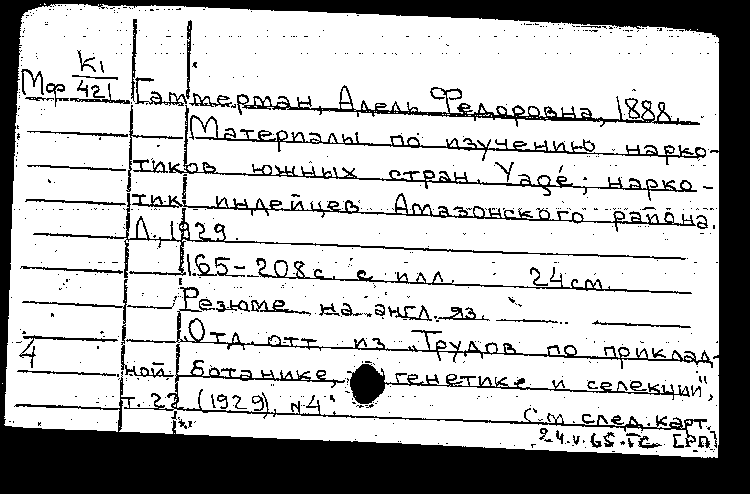 Мф К1/421 Гаммерман, Адель Федоровна, 1888.
Материалы по изучению нарко-
тиков южных стран. Yagé; нарко-
тик индейцев Амазонского района.
Л., 1929.
165-208 с. с илл. 24 см.
Резюме на англ. яз.
Отд. отт. из "Трудов по приклад-
4
ной ботанике, генетике и селекции",
т. 22 (1929), №4.
См. след. карт.
24.V.65. [РП]